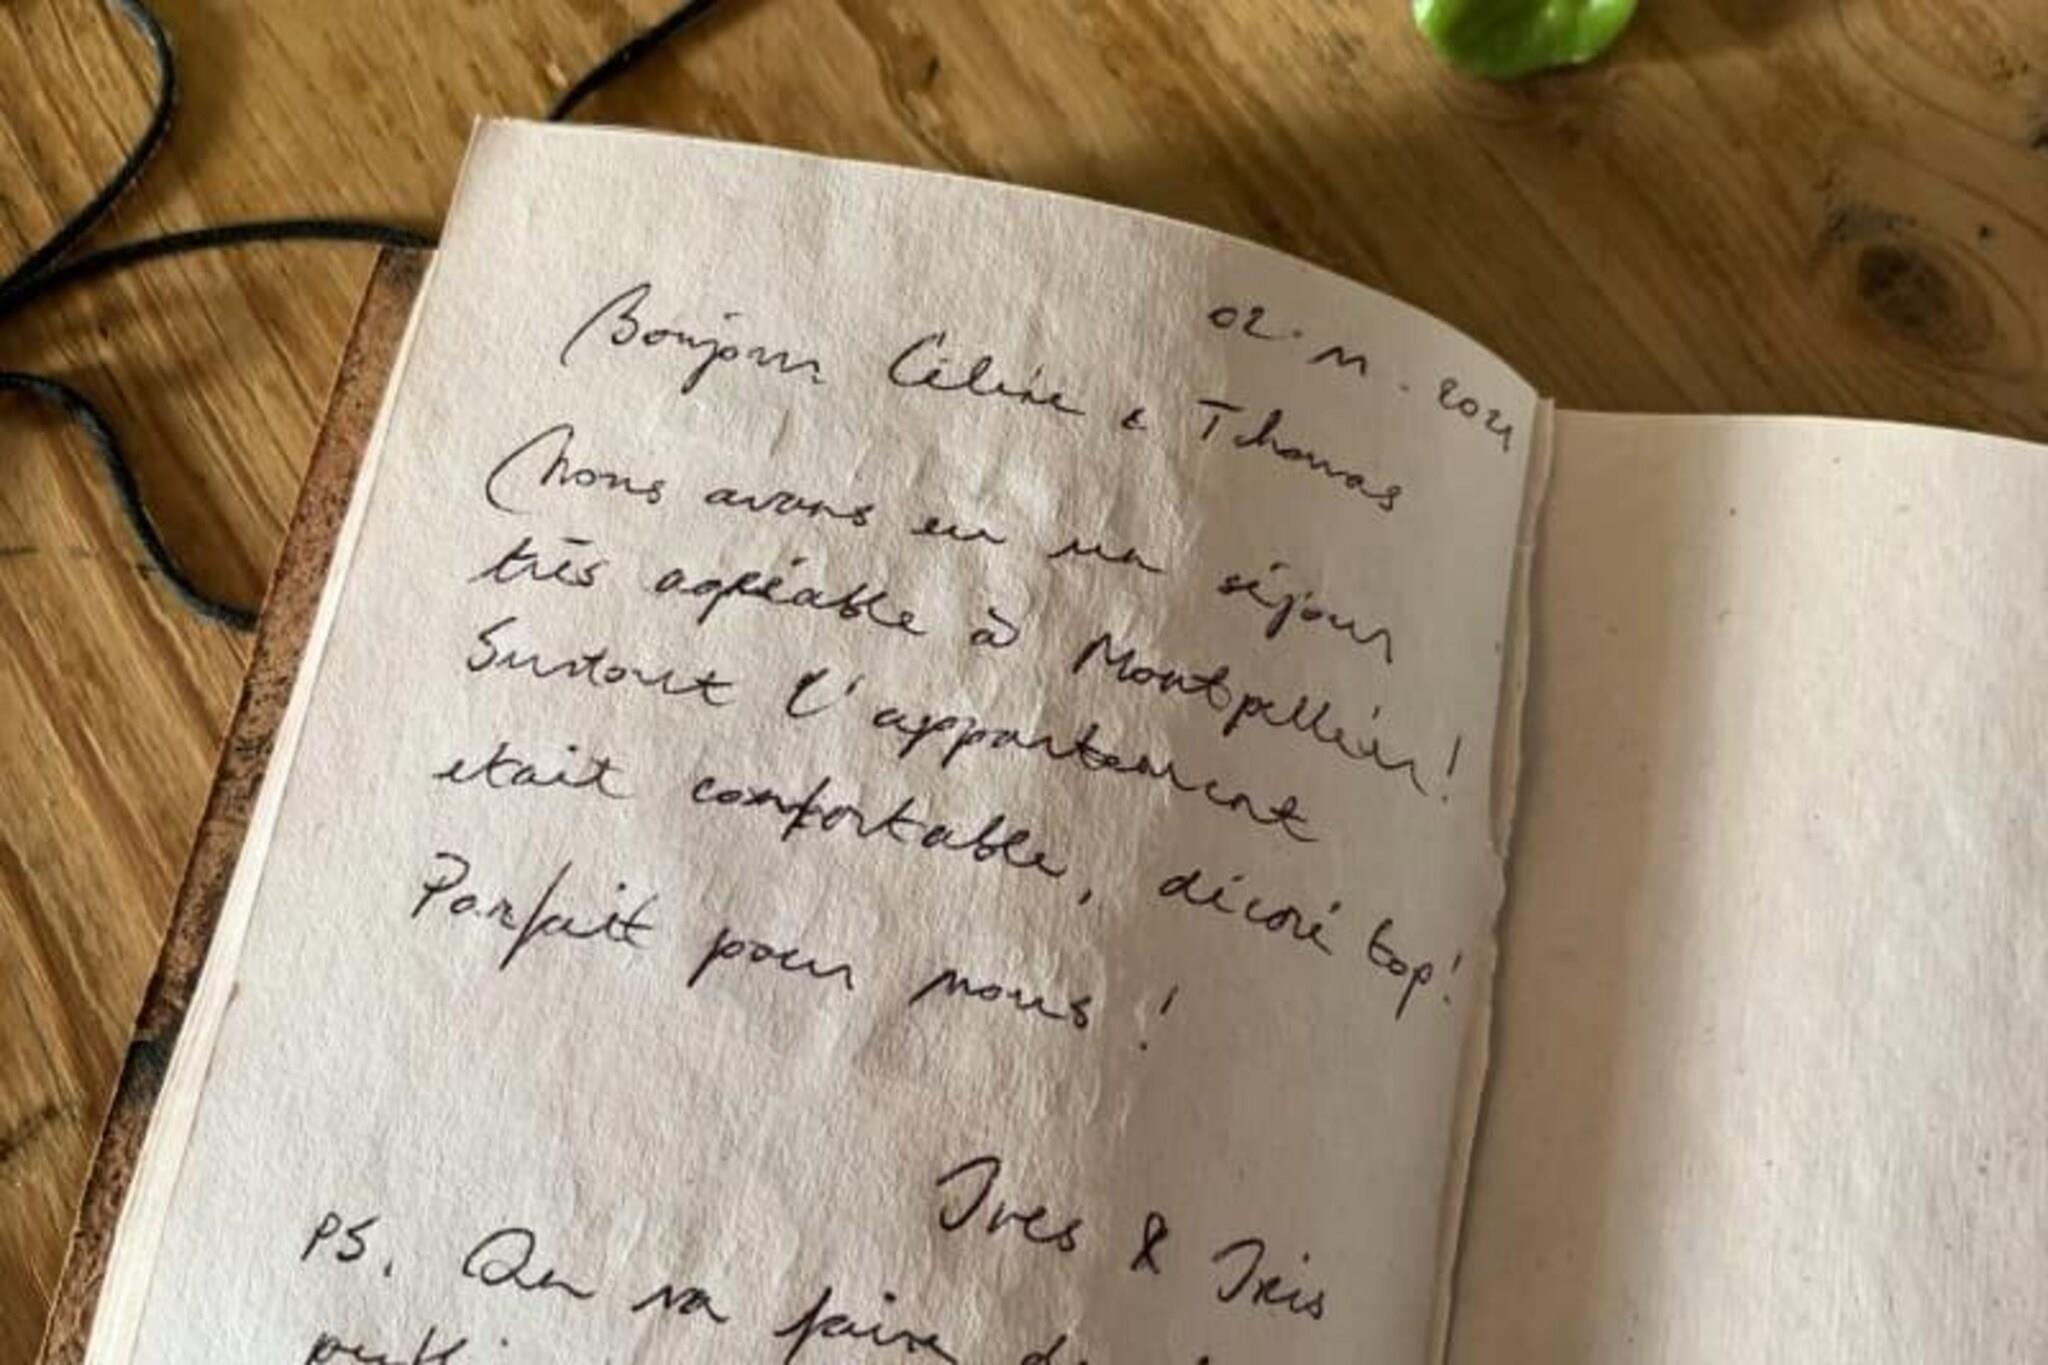 02. 11. 2021
Bonjour Céline & Thomas
Nous avons eu un séjour
très agréable à Montpellier!
Surtout l'appartement
etait confortable, décoré top!
Parfait pour nous !
Ives & Iris
PS. On va faire de